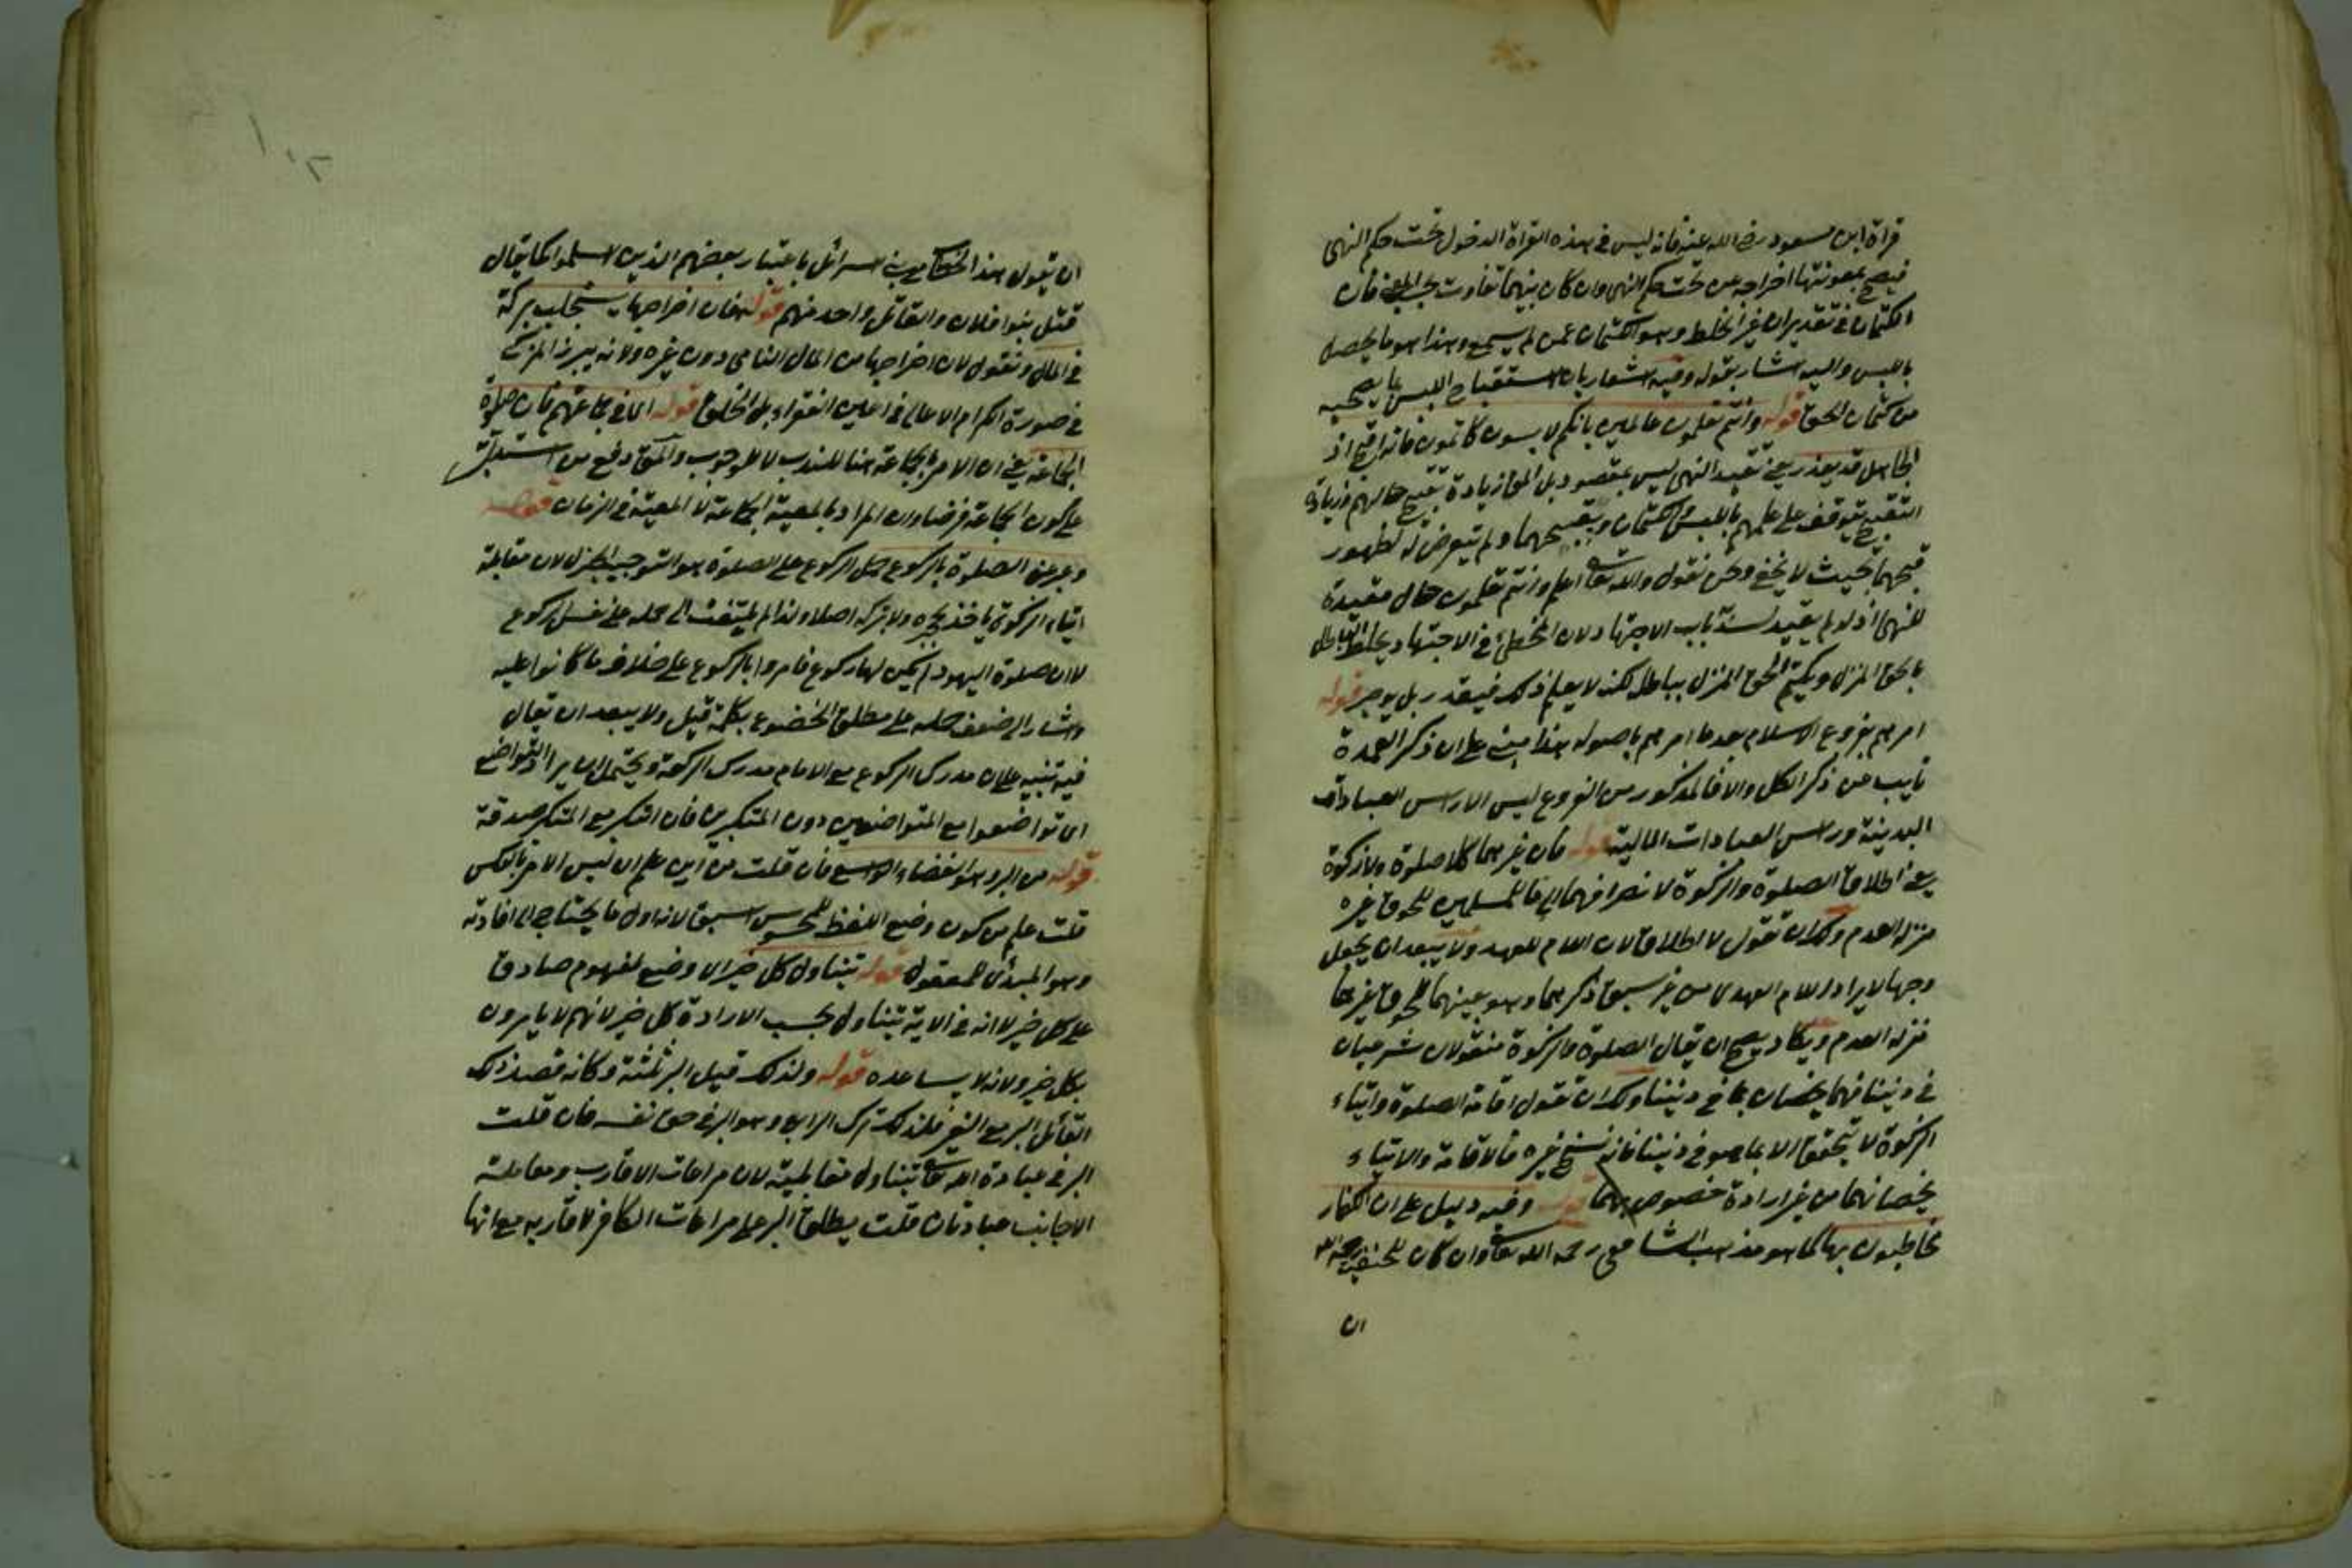 قراة ابن مسعود رضي الله عنه فانه ليس في هذه القراة الدخول تحت حكم النهى
فيصح بمعونتها اخراجه عن تحت حكم النهى وان كان بينهما تفاوت بحسب المعنى فان
الكتمان في تقدير ان غير الخلط وهو الكتمان عمن لم يسمع وهذا هو ما يحصل
باللبس واليه اشار بقوله وفيه اشعار بان استقباح اللبس لما يصحبه
من كتمان الحق قوله وانتم تعلمون عالمين بانكم لابسون كاتمون فانه اقبح اذ
الجاهل قد يعذر يعنى تقييد النهى ليس بمقصود بل المق زيادة تقبيح حالهم وزيادة
التقبيح يتوقف على علمهم باللبس والكتمان وبقبحهما ولم يتعرض له لظهور
قبحهما بحيث لا يخفى ونحن نقول والله تعالى اعلم وانتم تعلمون حال مقيدة
للنهى اذ لو لم يقيد لسد باب الاجتهاد لان المخطئ في الاجتهاد يخلط الباطل
بالحق المنزل ويكتم الحق المنزل بباطل لكن لا يعلم ذلك فيعذر بل يوجر قوله
امرهم بفروع الاسلام بعد ما امرهم باصوله هذا مبنى على ان ذكر العمدة
نايب عن ذكر الكل والا فالمذكور من الفروع ليس الا راس العبادات
البدنية وراس العبادات المالية قوله فان غيرهما كلا صلوة ولا زكوة
يعنى اطلاق الصلوة والزكوة لانصرافهما الى ما للمسلمين للحوق غيره
منزلة العدم ولك ان تقول لا اطلاق لان اللام للعهد ولا يبعد ان يجعل
وجها لايراد اللام العهدى من غير سبق ذكرهما وهو تعينهما للحوق غيرهما
منزلة العدم ويكاد يصح ان يقال الصلوة والزكوة منقولان شرعيان
في ديننا فهما يخصان بما في ديننا ولك ان تقول اقامة الصلوة وايتاء
الزكوة لا يتحقق الا بما هو في ديننا فانه نسخ غيره فالاقامة والايتاء
يخصانهما من غير ارادة خصوص بهما قوله وفيه دليل على ان الكفار
مخاطبون بها كما هو مذهب الشافعي رحمه الله تعالى وان كان للحنفية رحمه الله
ان
ان يقول هذا الخطاب مع بنى اسرائل باعتبار بعضهم الذين اسلموا كما يقال
قتل بنوا فلان والقاتل واحد منهم قوله فان اخراجها يستجلب بركة
في المال ونقول لان اخراجها من المال النامى دون غيره ولانه يبرز المزكى
في صورة الكرام الاعالى في اعين الفقراء بل الخلق قوله اى في جماعتهم فان صلوة
الجماعة يعنى ان الامر بالجماعة هنا للندب لا للوجوب والمق دفع من استدل
على كون الجماعة فرضا وان المراد بالمعية الجماعة لا المعية في الزمان قوله
وعبر عن الصلوة بالركوع حمل الركوع على الصلوة هو التوجيه الجزل لان مقابلة
ايتاء الزكوة ياخذ بحجزه ولا يتركه اصلا ولذا لم يلتفت الى حمله على نفس الركوع
لان صلوة اليهود لم يكن لها ركوع فامروا بالركوع على خلاف ما كانوا عليه
واشار الى ضعف حمله على مطلق الخضوع بكلمة قيل ولا يبعد ان يقال
فيه تنبيه على ان مدرك الركوع مع الامام مدرك الركعة ويحتمل ان يراد التواضع
اى تواضعوا مع المتواضعين دون المتكبرين فان التكبر مع المتكبر صدقة
قوله من البر وهو الفضاء الواسع فان قلت من اين علم ان ليس الامر بالعكس
قلت علم من كون وضع اللفظ للمحسوس اسبق لانه اول ما يحتاج الى افادته
وهو المبدئ للمعقول قوله يتناول كل خير اى وضع لمفهوم صادق
على كل خير لا انه في الاية يتناول بحسب الارادة كل خير لانهم لا يامرون
بكل خير ولانه لا يساعده قوله ولذلك قيل البر ثلثة وكانه قصد ذلك
القائل البر مع الغير فلذلك ترك الرابع وهو البر في حق نفسه فان قلت
البر في عبادة الله تعالى يتناول مقابليه لان مراعات الاقارب ومعاملة
الاجانب عبادتان قلت يطلق البر على مراعات الكافر لاقاربه مع انها